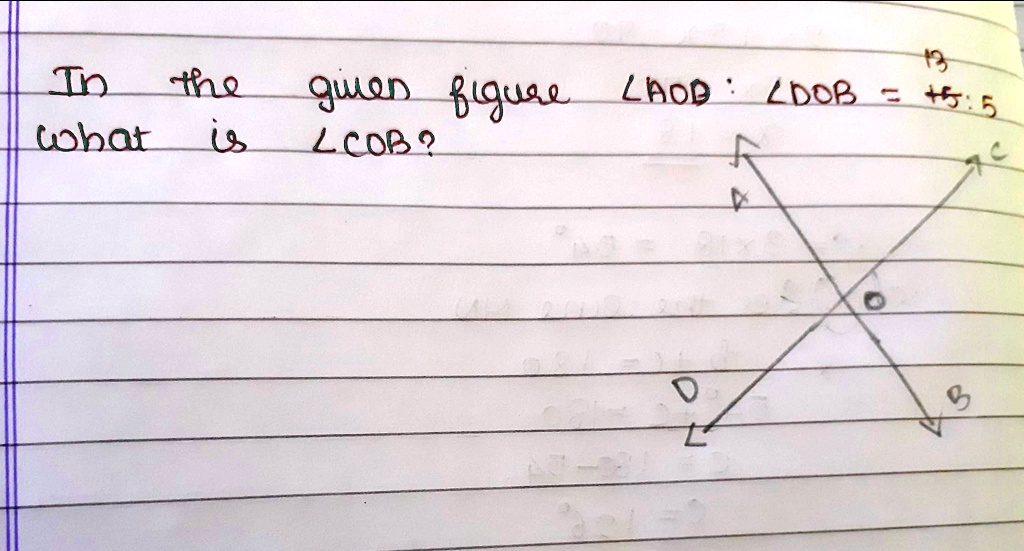 In the given figure ∠AOD : ∠DOB = 13 : 5
What is ∠COB?
A
C
O
D
B